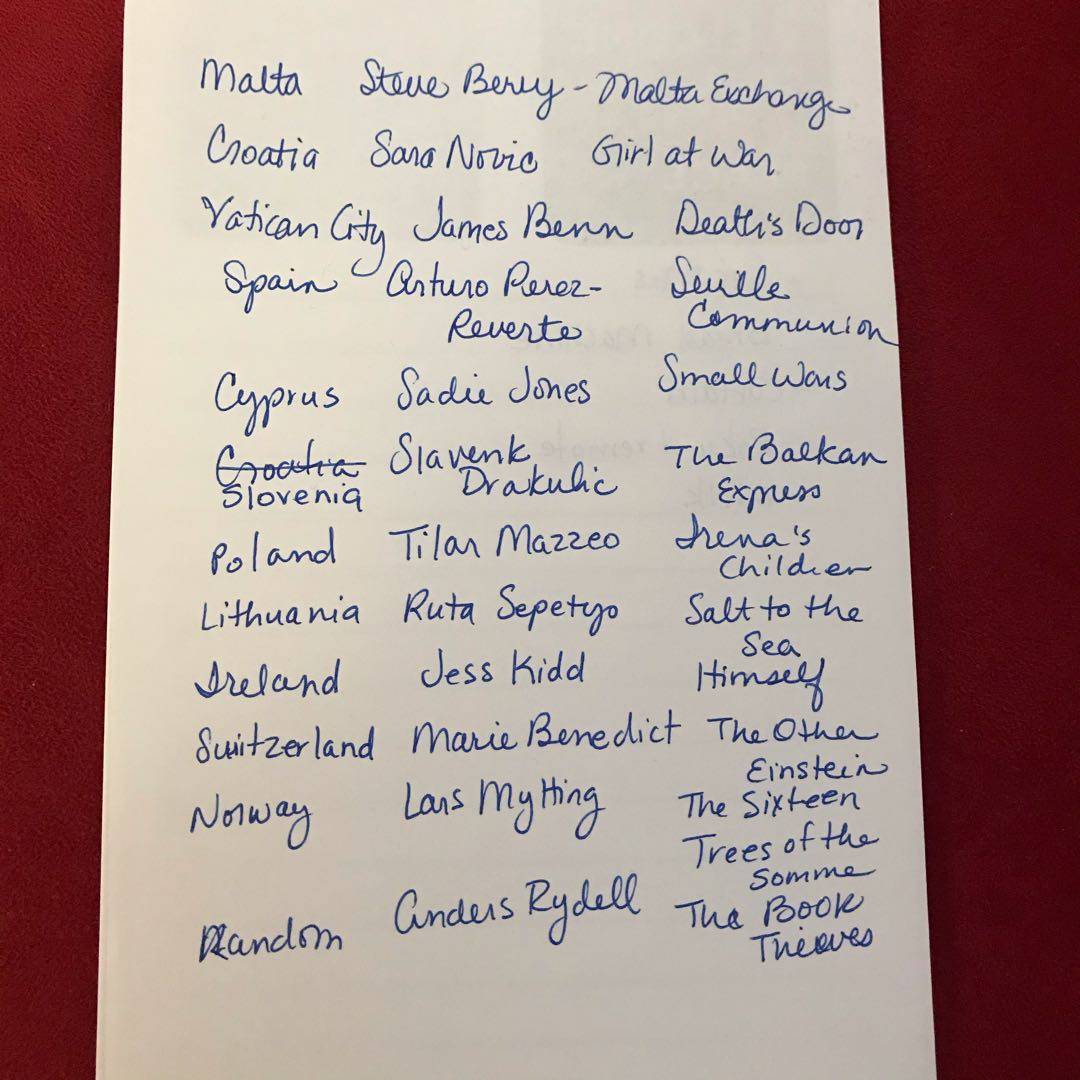 Malta Steve Berry - Malta Exchange
Croatia Sara Novic Girl at War
Vatican City James Benn Death's Door
Spain Arturo Perez- Seville
Reverte Communion
Cyprus Sadie Jones Small Wars
Croatia Slavenk The Balkan
Slovenia Drakulic Express
Poland Tilar Mazzeo Irena's
Children
Lithuania Ruta Sepetys Salt to the
Sea
Ireland Jess Kidd Himself
Switzerland Marie Benedict The Other
Einstein
Norway Lars Mytting The Sixteen
Trees of the
Somme
Random Anders Rydell The Book
Thieves